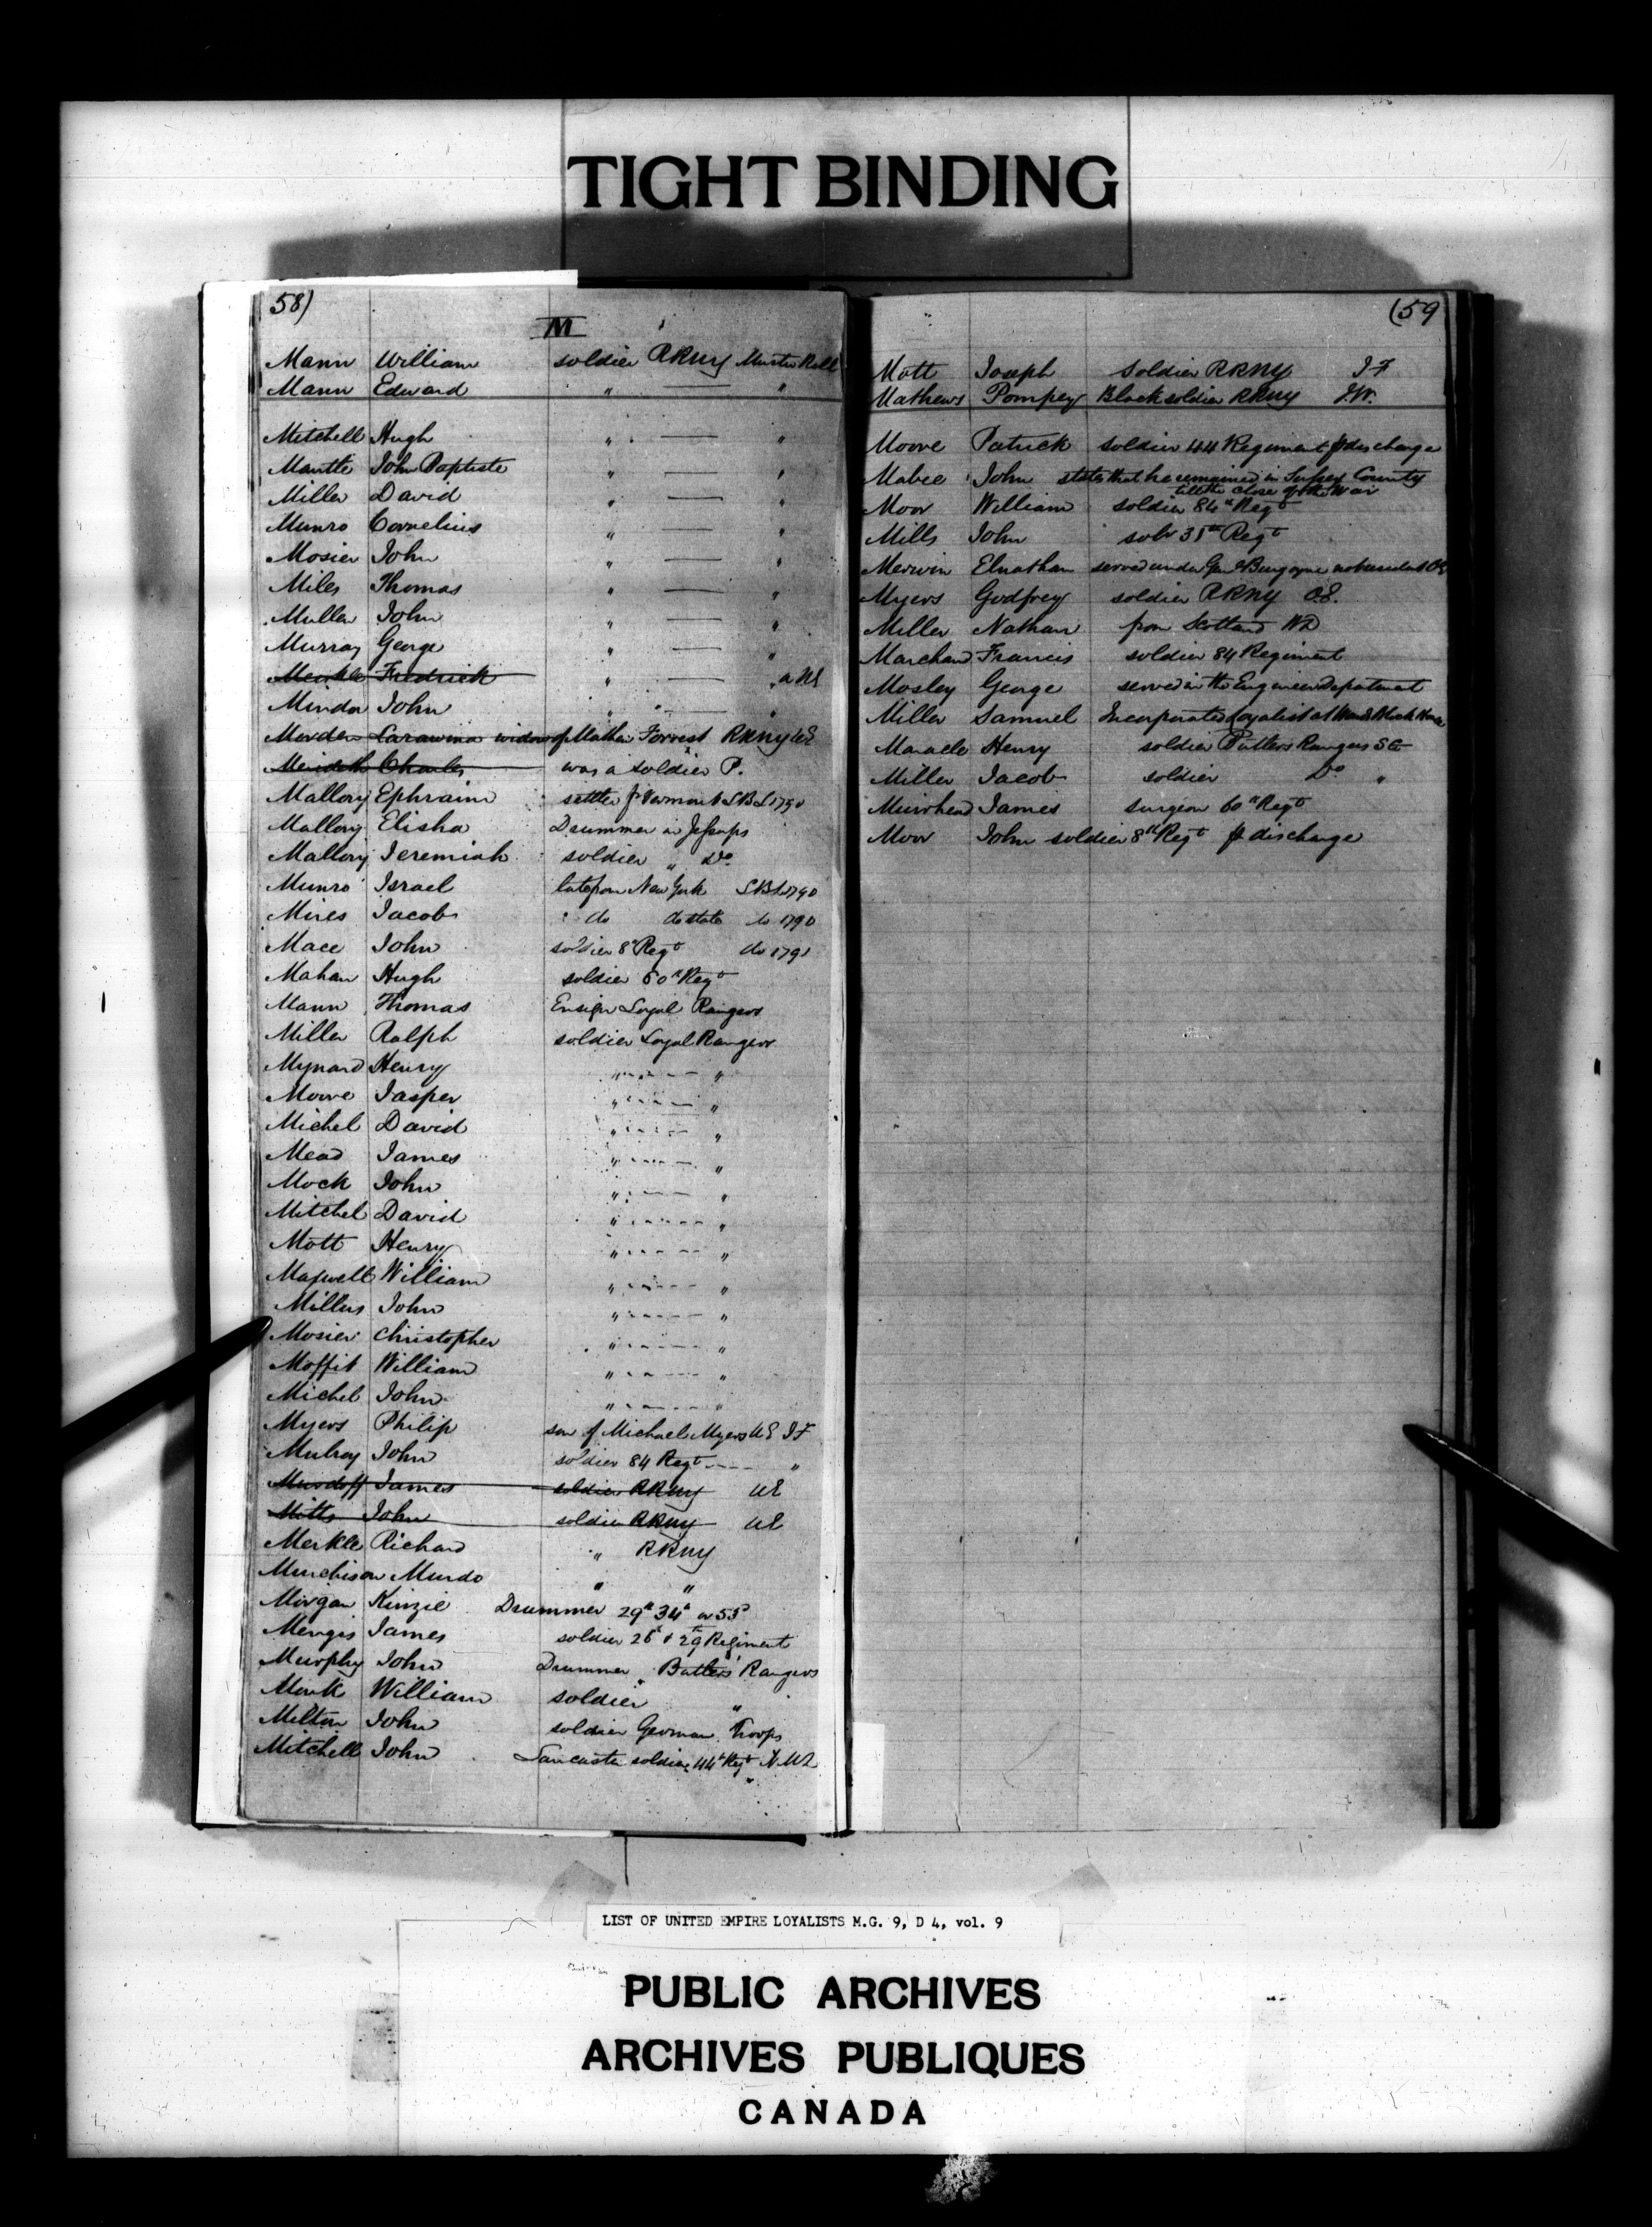 TIGHT BINDING
58)
M
Mann William soldier RRNY Muster Roll
Mann Edward " —— "
Mitchell Hugh " —— "
Mantle John Baptiste " —— "
Miller David " —— "
Munro Cornelius " —— "
Mosier John " —— "
Miles Thomas " —— "
Muller John " —— "
Murray George " —— "
Meirkle Fredrick " —— " a UE
Minda John " " "
Morden widow of Mathew Forrest RRNY UE
Meridith Charles was a soldier P.
Mallory Ephraim settler f Vermont LBL 1790
Mallory Elisha Drummer in Jessups
Mallory Jeremiah soldier " Do
Munro Israel late from New York LBL 1790
Mires Jacob do do state do 1790
Mace John soldier 8th Regt do 1791
Mahan Hugh soldier 60th Regt
Mann Thomas Ensign Loyal Rangers
Miller Ralph soldier Loyal Rangers
Mynard Henry " ---- "
Moore Jasper " ---- "
Michel David " ---- "
Mead James " ---- "
Mock John " ---- "
Mitchel David " ---- "
Mott Henry " ---- "
Maxwell William " ---- "
Millus John " ---- "
Mosier Christopher " ---- "
Moffit William " ---- "
Michel John " ---- "
Myers Philip son of Michael Myers UE IF
Mulroy John soldier 84 Regt ---- "
Murdoff James soldier RRNY UE
Mitts John soldier RRNY UE
Merkle Richard " RRNY
Murchison Murdo " "
Morgan Kinzie Drummer 29th 34th or 53d
Mengis James soldier 26th & 29th Regiment
Murphy John Drummer Butlers Rangers
Monk William soldier " "
Milton John soldier German Troops
Mitchell John Lancaster soldier 44th Regt
(59
Mott Joseph Soldier RRNY IF
Mathews Pompey Black soldier RRNY J.W.
Moore Patrick soldier 44 Regiment p discharge
Mabee John states that he remained in Sussex County
till the close of the War
Moor William soldier 84th Regt
Mills John solr 35th Regt
Merwin Elnathan served under Genl Burgoyne
Myers Godfrey soldier RRNY O.E.
Miller Nathan from Scotland WD
Marchand Francis soldier 84 Regiment
Mosley George served in the Engineer Department
Miller Samuel Incorporated Loyalist at Block House
Maracle Henry soldier Butlers Rangers St
Miller Jacob soldier Do "
Muirhead James surgeon 60th Regt
Moor John soldier 8th Regt p discharge
LIST OF UNITED EMPIRE LOYALISTS M.G. 9, D 4, vol. 9
PUBLIC ARCHIVES
ARCHIVES PUBLIQUES
CANADA